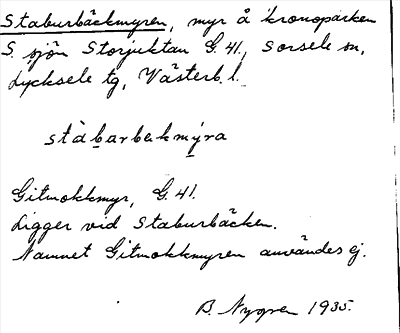 Staburbäckmyren, myr å kronoparken
S. sjön Storjuktan G. 41, Sorsele sn,
Lycksele tg, Västerb. l.
stàbarbekmýra
Gitmokkmyr, G. 41.
Ligger vid Staburbäcken.
Namnet Gitmokkmyren användes ej.
B. Nygren 1935.